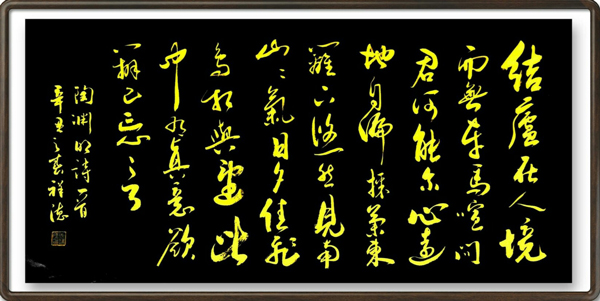 結廬在人境
而無車馬喧問
君何能尔心遠
地自偏採菊東
籬下悠然見南
山〻氣日夕佳飛
鳥相與還此
中有真意欲
辨已忘言
陶渊明詩一首
辛丑之春祥德